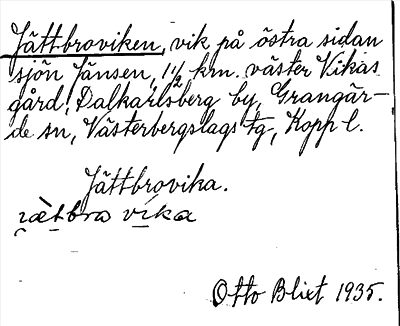 Jättbroviken, vik på östra sidan
sjön Jänsen, 1½ km. väster Vikas
gård, Dalkarlsberg by, Grangär-
de sn, Västerbergslags tg, Kopp l.
Jättbrovika.
Otto Blixt 1935.